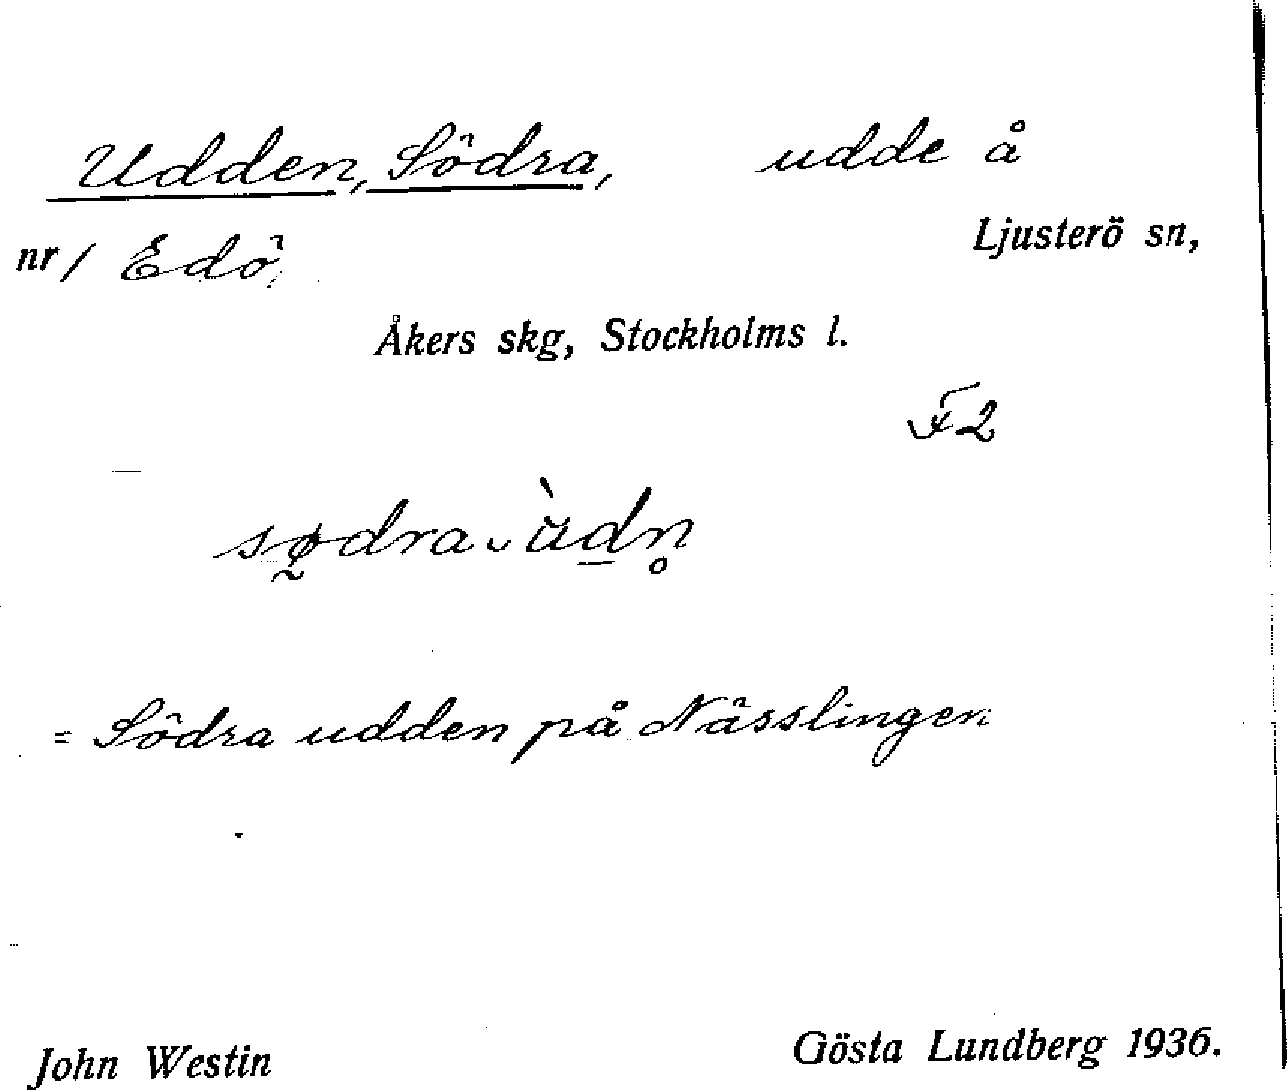 Udden, Södra, udde å
nr/ Edö, Ljusterö sn,
Åkers skg, Stockholms l.
F2
sø̰dra ᵕ ὰd̲n̥
= Södra udden på Nässlingen
John Westin Gösta Lundberg 1936.